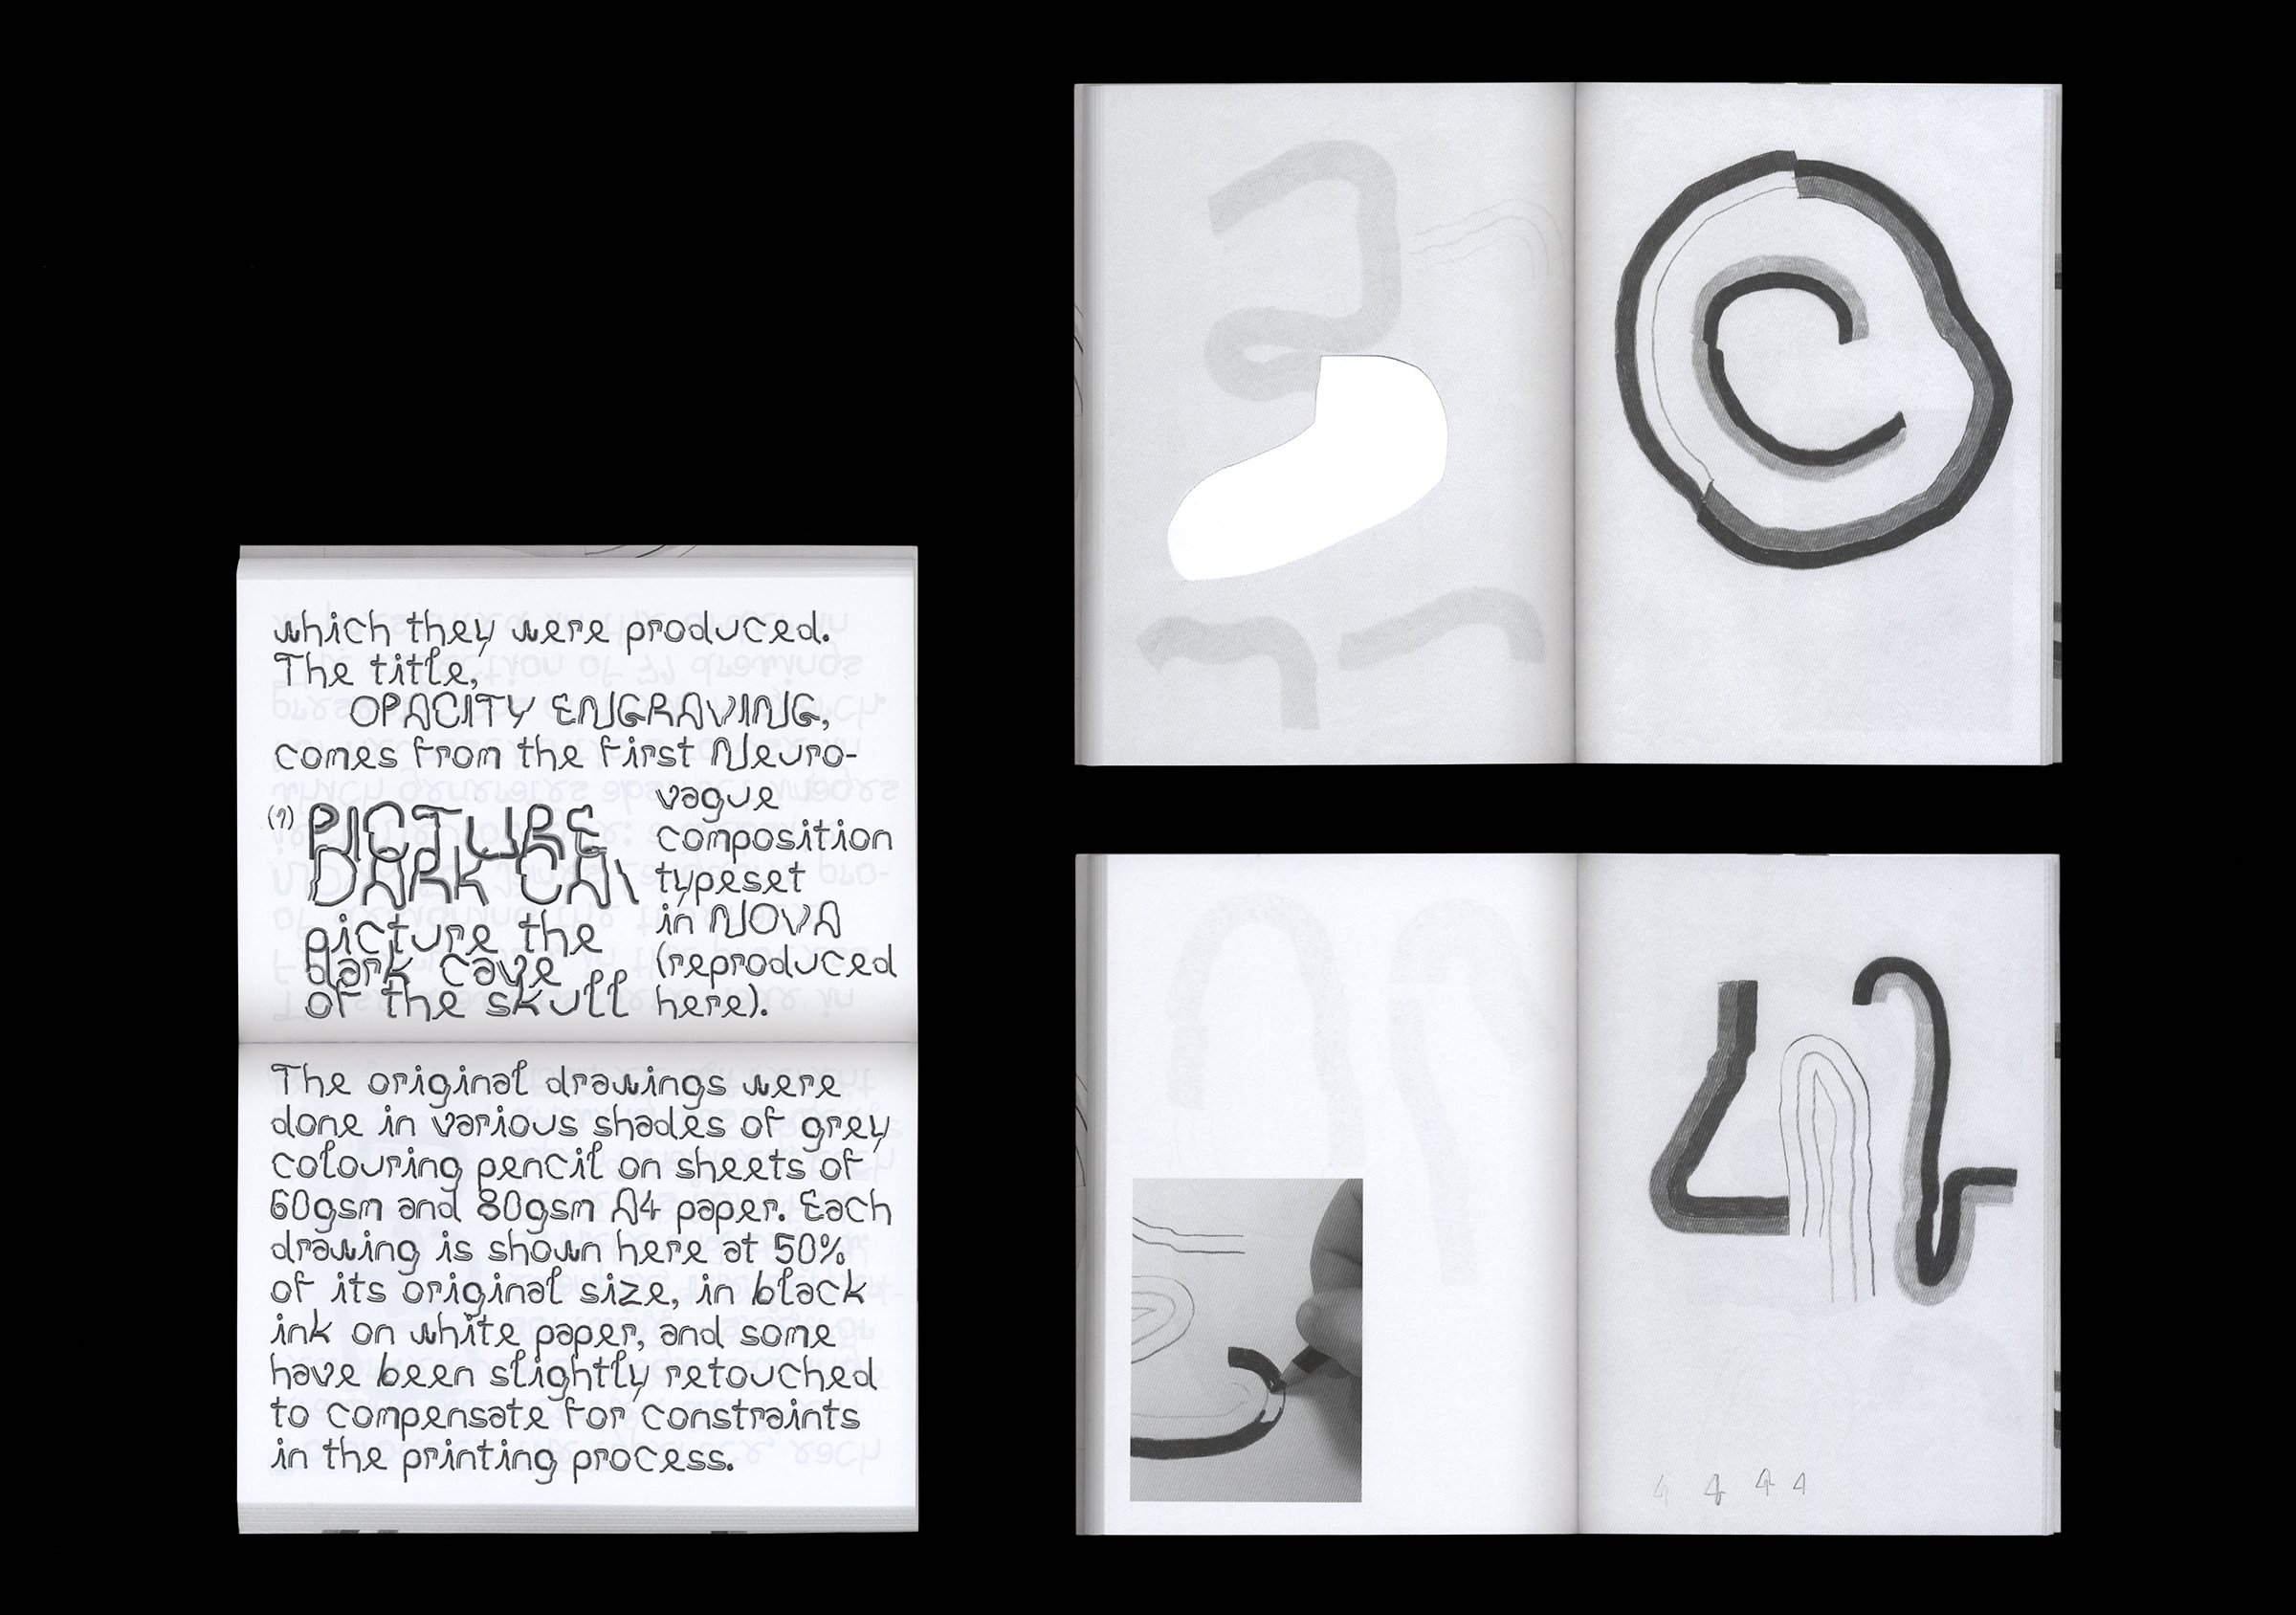 which they were produced.
The title,
OPACITY ENGRAVING,
comes from the first Neuro-
vague
composition
typeset
in NOVA
(reproduced
here).
(1)
PICTURE
DARK CAV
picture the
dark cave
of the skull
The original drawings were
done in various shades of grey
colouring pencil on sheets of
60gsm and 80gsm A4 paper. Each
drawing is shown here at 50%
of its original size, in black
ink on white paper, and some
have been slightly retouched
to compensate for constraints
in the printing process.
©
4 4 4 4